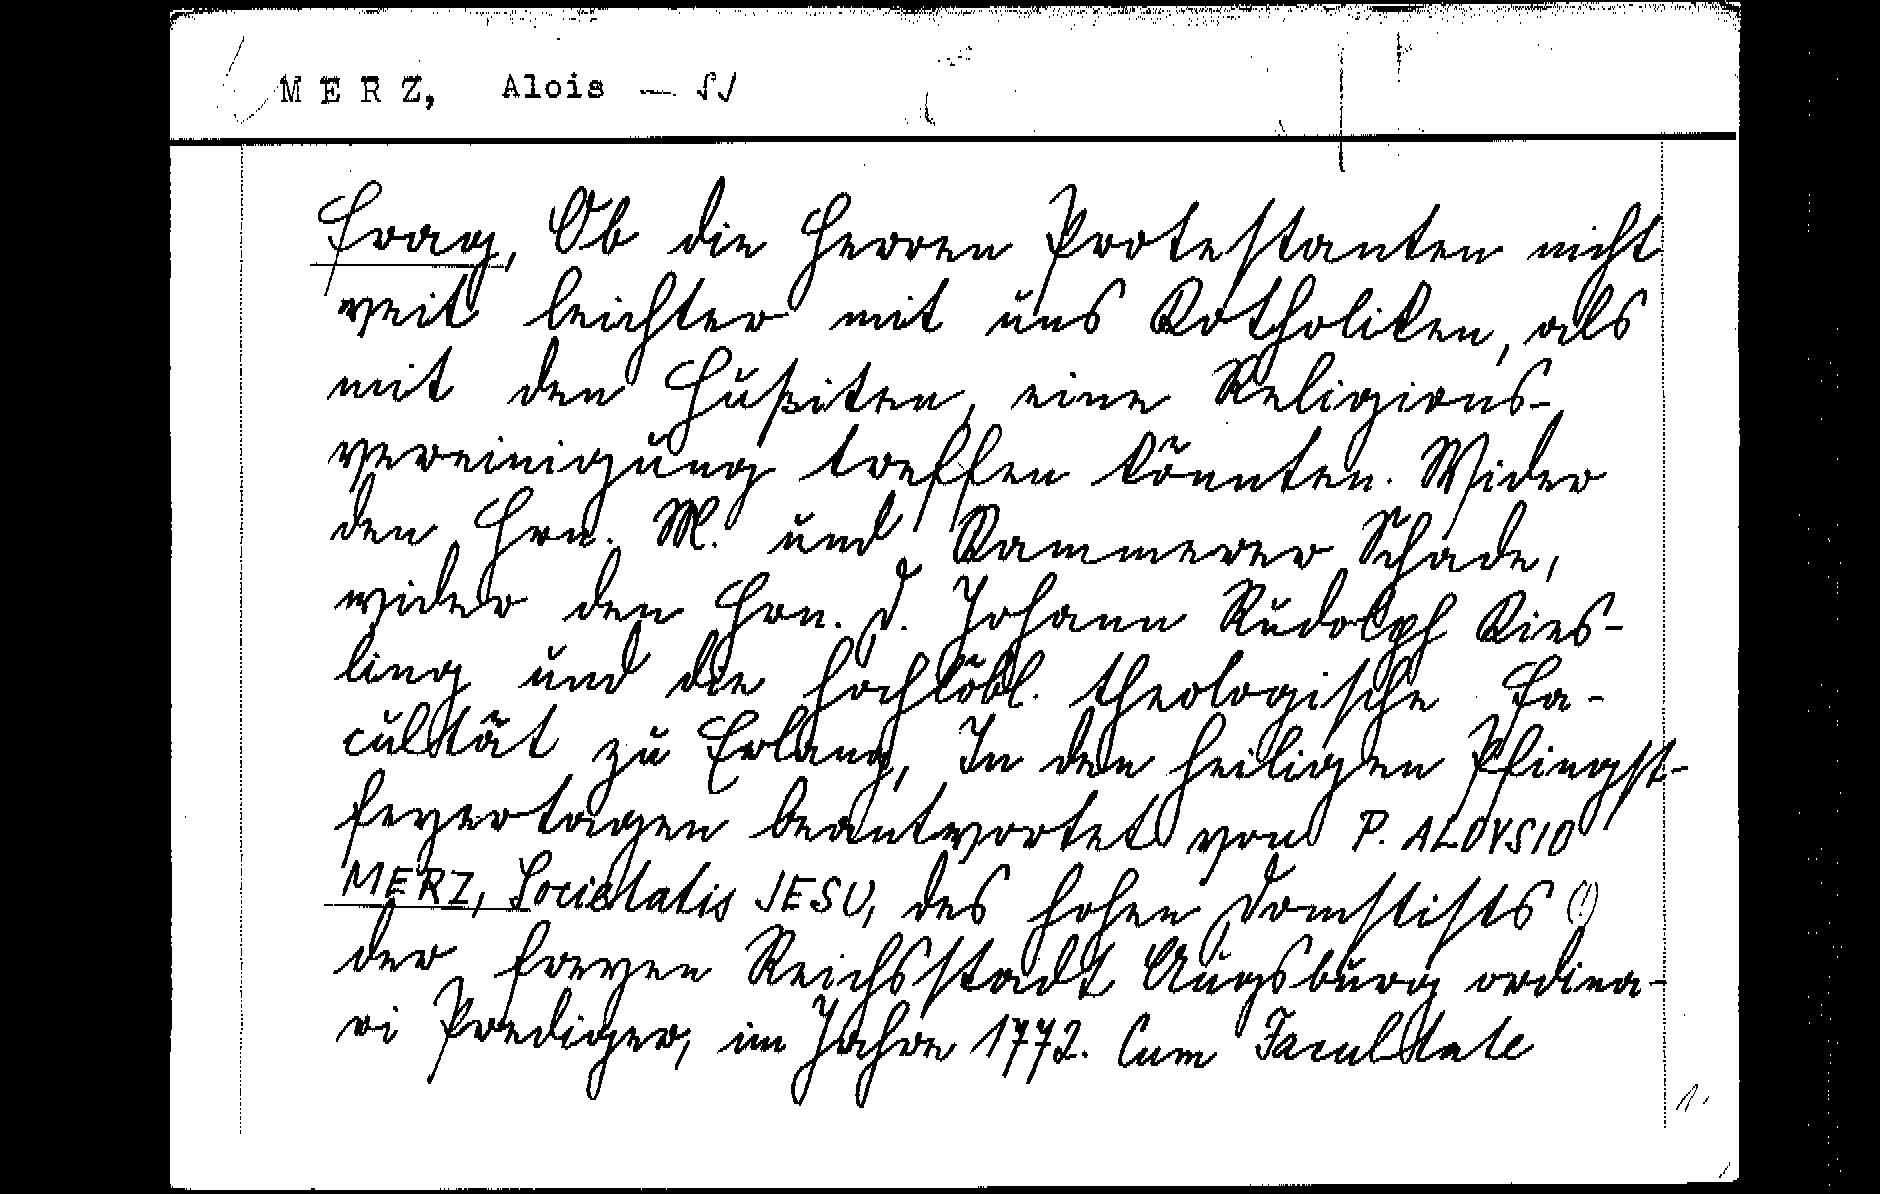 MERZ, Alois — SJ
Frag, Ob die Herren Protestanten nicht
weit leichter mit uns Katholiken, als
mit den Hußiten, eine Religions-
vereinigung treffen könnten. Wider
den Hrn. M. und Kammerer Schade,
wider den Hrn. D. Johann Rudolph Kies-
ling und die hochlöbl. theologische Fa-
cultät zu Erlang, In den heiligen Pfingst-
feyertagen beantwortet von P. ALOYSIO
MERZ, Societatis JESU, des hohen Domstifts (!)
der freyen Reichsstadt Augsburg ordina-
ri Prediger, im Jahre 1772. Cum Facultate
1.